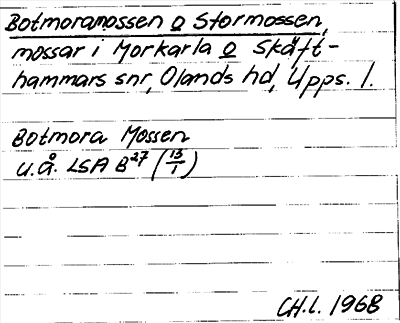 Botmoramossen o Stormossen,
mossar i Morkarla o Skäft-
hammars snr, Olands hd, Upps. l.
Botmora Mossen
u.å. LSA B27 (13/1)
CH.L. 1968